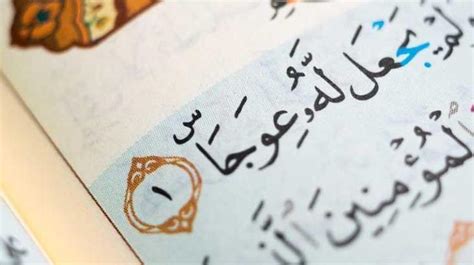 لَمْ يَجْعَل لَّهُۥ عِوَجَاۜ ١
الْمُؤْمِنِينَ